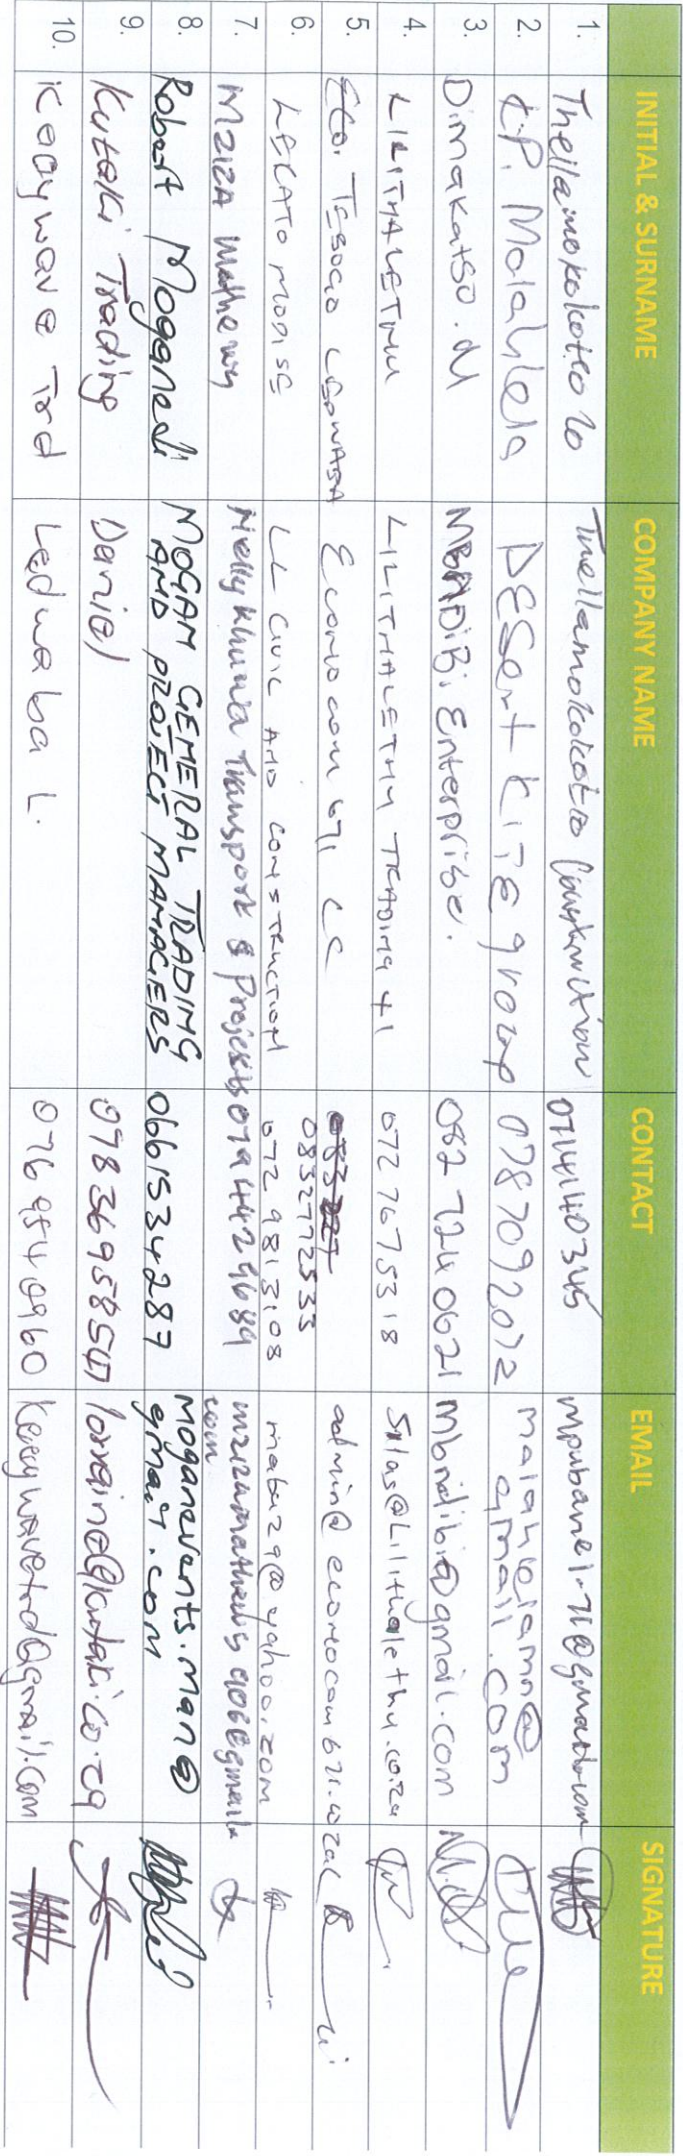 INITIAL & SURNAME COMPANY NAME CONTACT EMAIL SIGNATURE
1. Theilamokokotlo Construction 0714140345
2. K.P. Malahlela DESert KiTE group 0787092072 malahlelamn@gmail.com
3. Dimakatso. M MBADiBi Enterprise. 082 724 0621 Mbadibi@gmail.com
4. LILITHALETHU LILITHALETHU TRADING 41 072 7675318 Silas@Lilithalethu.co.za
5. Economocom 671 CC 0832772533 admin@
6. LECATO MODISE LL CIVIL AND CONSTRUCTION 072 9813108 mabuza9@yahoo.com
7. Mziza Mathews Nelly Khunwa Transport & Projects 0794429689 mzizamathews906@gmail.com
8. Robert Moganedi MOGAM GENERAL TRADING AND PROJECT MANAGERS 0661534287 moganevents.man@gmail.com
9. Kutaki Trading Daniel lorraine@kutaki.co.za
10. Kaaywave Trd Ledwaba L. 076 954 0960 Kaaywavetrd@gmail.com